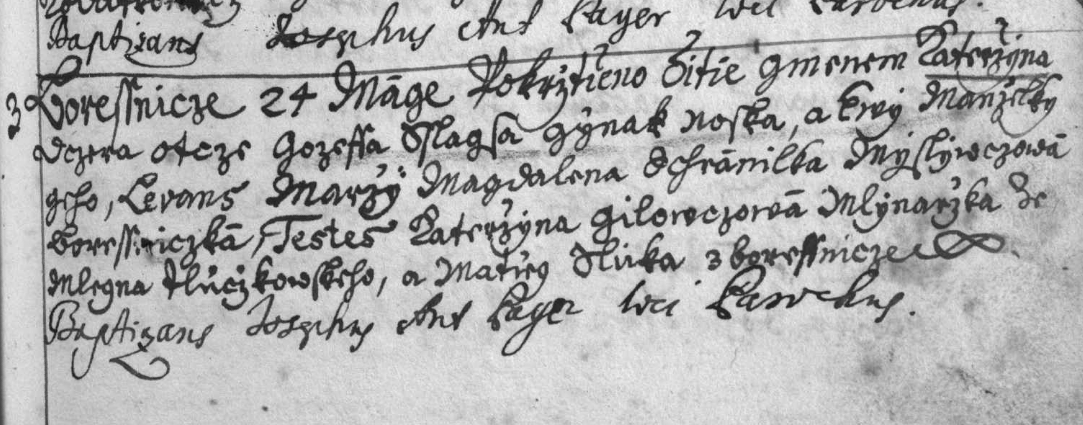 Baptizans Josephus Ant Kayer loci
3 Boressnicze 24 Máge Pokržtieno Ditie gmenem Kateržina
dczera otcze Gozeffa Sslagsa gynak Noska, a Ewy Manželky
geho, Levans Maržy Magdalena Schránilka Myslywczowá
boressniczká, Testes Kateržyna Gilowczowá Mlynaržka Ze
Mlegna Tluczkowskeho, a Matieg Sluka z boressnicze
Baptizans Josephus Ant Kayer loci